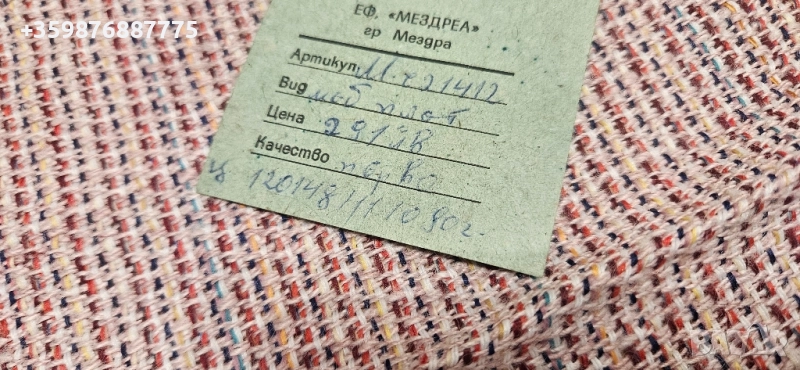 +359876887775
ЕФ. «МЕЗДРЕЛ»
гр Мездра
Артикул М-421412
Вид меб плат
Цена 291 лв
Качество първо
ц 120148/1.10 90г.